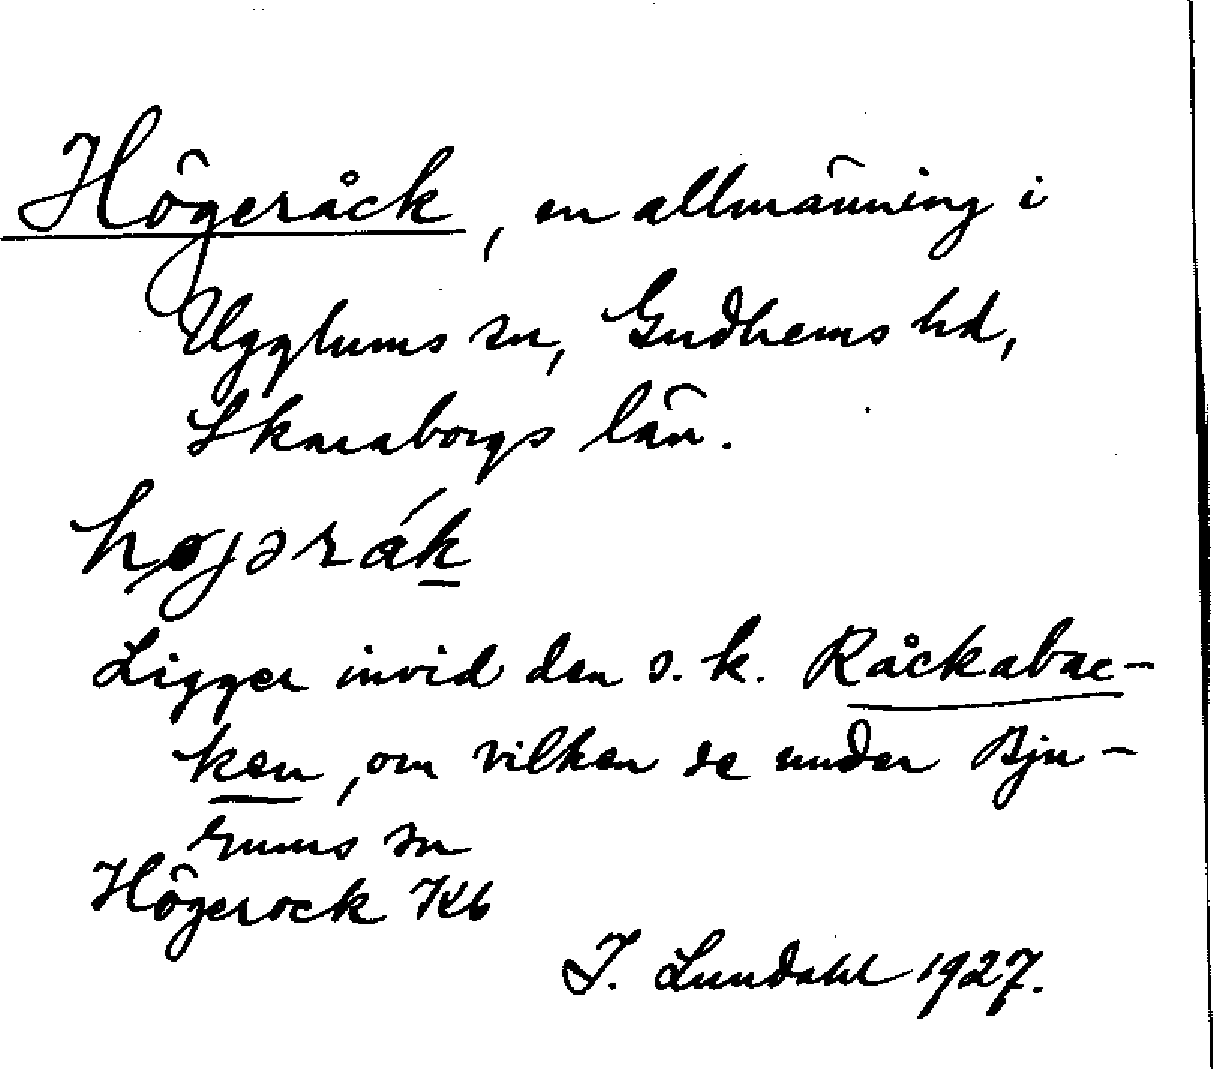 Högeråck, en allmänning i
Ugglums sn, Gudhems hd,
Skaraborgs län.
højərák
Ligger invid den s. k. Råckabac-
ken, om vilken se under Bju-
rums sn
Högerock Kb
I. Lundahl 1927.